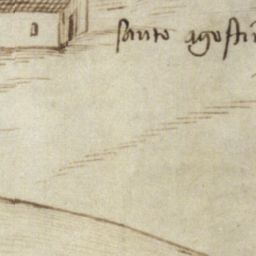 santo agostin